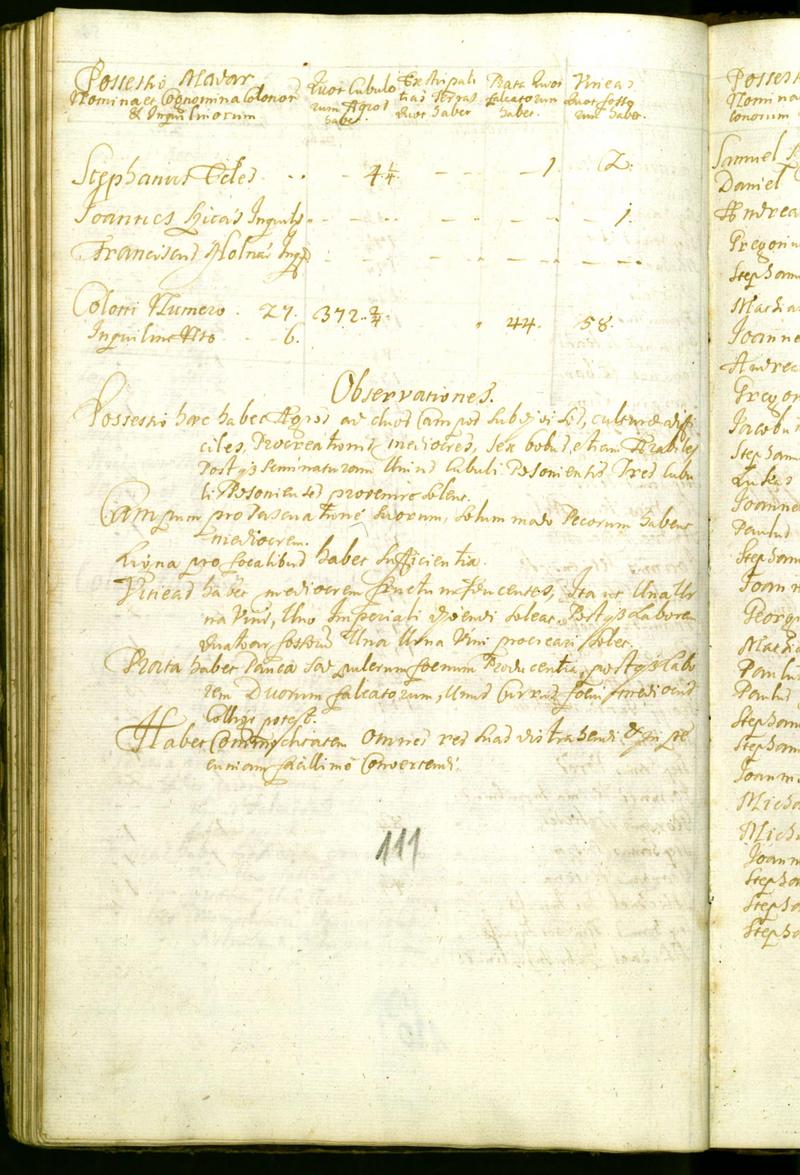 Possessio Madar
Nomina et Cognomina Colonor
& Inquilinorum
Quot Cubulo
rum Agros
habet.
Exstirpati
tias Terras
Quot habet
Prata Quot
falcatorum
habet.
Vineas
Quot fosso
rum habet.
Stephanus Veles . . - 4 1/4 - - - 1 2.
Joannes Lucas Inquil. - - - - 1.
Franciscus Molnar Inq - - - -
Coloni Numero . 27. 372. 3/4 44. 58.
Inquilini Nro . . 6.
Observationes.
Possessio haec habet Agros ad duos Campos subdivisos, culturae diffi
ciles, Procreationis mediocres, sex bobus etiam Arabiles
Post qs seminaturam Unius Cubuli Posoniensis Tres Cubu
li Posonienses provenire solent.
Campum pro pascuatione suorum, solum modo Pecorum habent
mediocrem.
Ligna pro focalibus habet sufficientia.
Vineas habet mediocrem fructum producentes, Ita ut Una Ur
na Vini, Uno Imperiali vendi soleat. Post qs Laborem
quatuor fossorum Una Urna Vini procreari solet.
Prata habet Pauca sed purum foenum Producentia, post qs Labo
rem Duorum falcatorum, Unus Currus foeni mediocris
Colligi potest.
Habet Commoditatem omnes res suas distrahendi & in pe
cuniam facillime Convertendi.
111
Possess
Nomina
lonorum
Samuel
Daniel
Andrea
Gregoriu
Stephan
Mathia
Joanne
Andrea
Gregor
Jacobu
Stephan
Lukas
Joanne
Paulus
Stephan
Joann
Georgi
Mathia
Paulu
Paulus
Stephan
Stephan
Joanne
Micha
Micha
Joann
Stepha
Stepha
Stepha